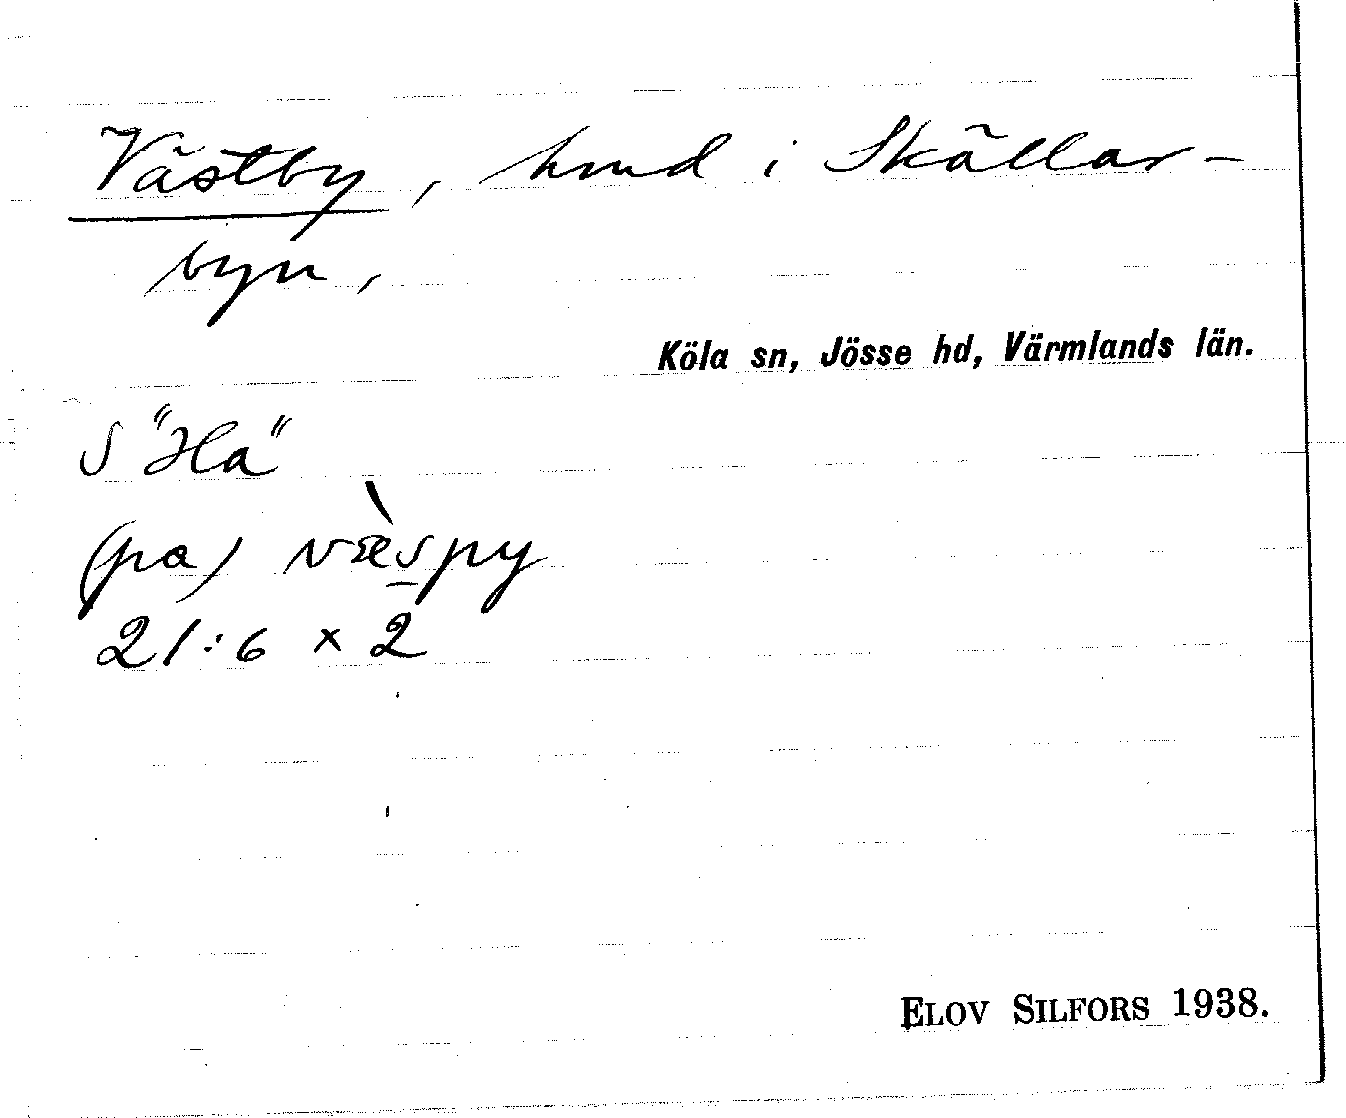 Västby, hmd i Skällar-
byn,
Köla sn, Jösse hd, Värmlands län.
S "Ha"
(pa) væ̀spy
21:6 x 2
ELOV SILFORS 1938.